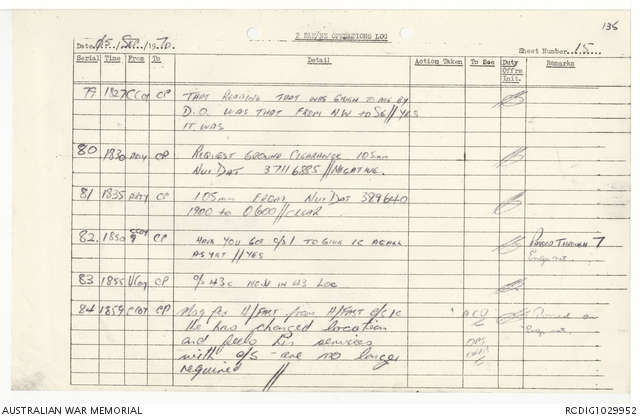 136
2 RAR/NZ OPERATIONS LOG
Date 15 / / 1970. Sheet Number 15
Serial Time From To Detail Action Taken To See Duty Offrs Init. Remarks
79 1827 C Coy CP THAT READING THAT WAS GIVEN TO ME BY
D.O. WAS THAT FROM NW TO SE // YES
IT WAS
80 1830 ARTY CP REQUEST GROUND CLEARANCE 105mm
NUI DAT 37116885 // NEGATIVE.
81 1835 ARTY CP 105mm FROM NUI DAT 389640
1900 to 0600 // CLEAR
82 1850 CP HAVE YOU GOT C/S 1 TO GIVE IC AGAIN
AS YET // YES
PASSED THROUGH 7
83 1855 VCoy CP IN 43 LOC
84 1859 CP Msg for H/FAST from H/FAST C/S 1C
He has changed location
and feels his services
with C/S - are no longer
required //
AUSTRALIAN WAR MEMORIAL
RCDIG1029952